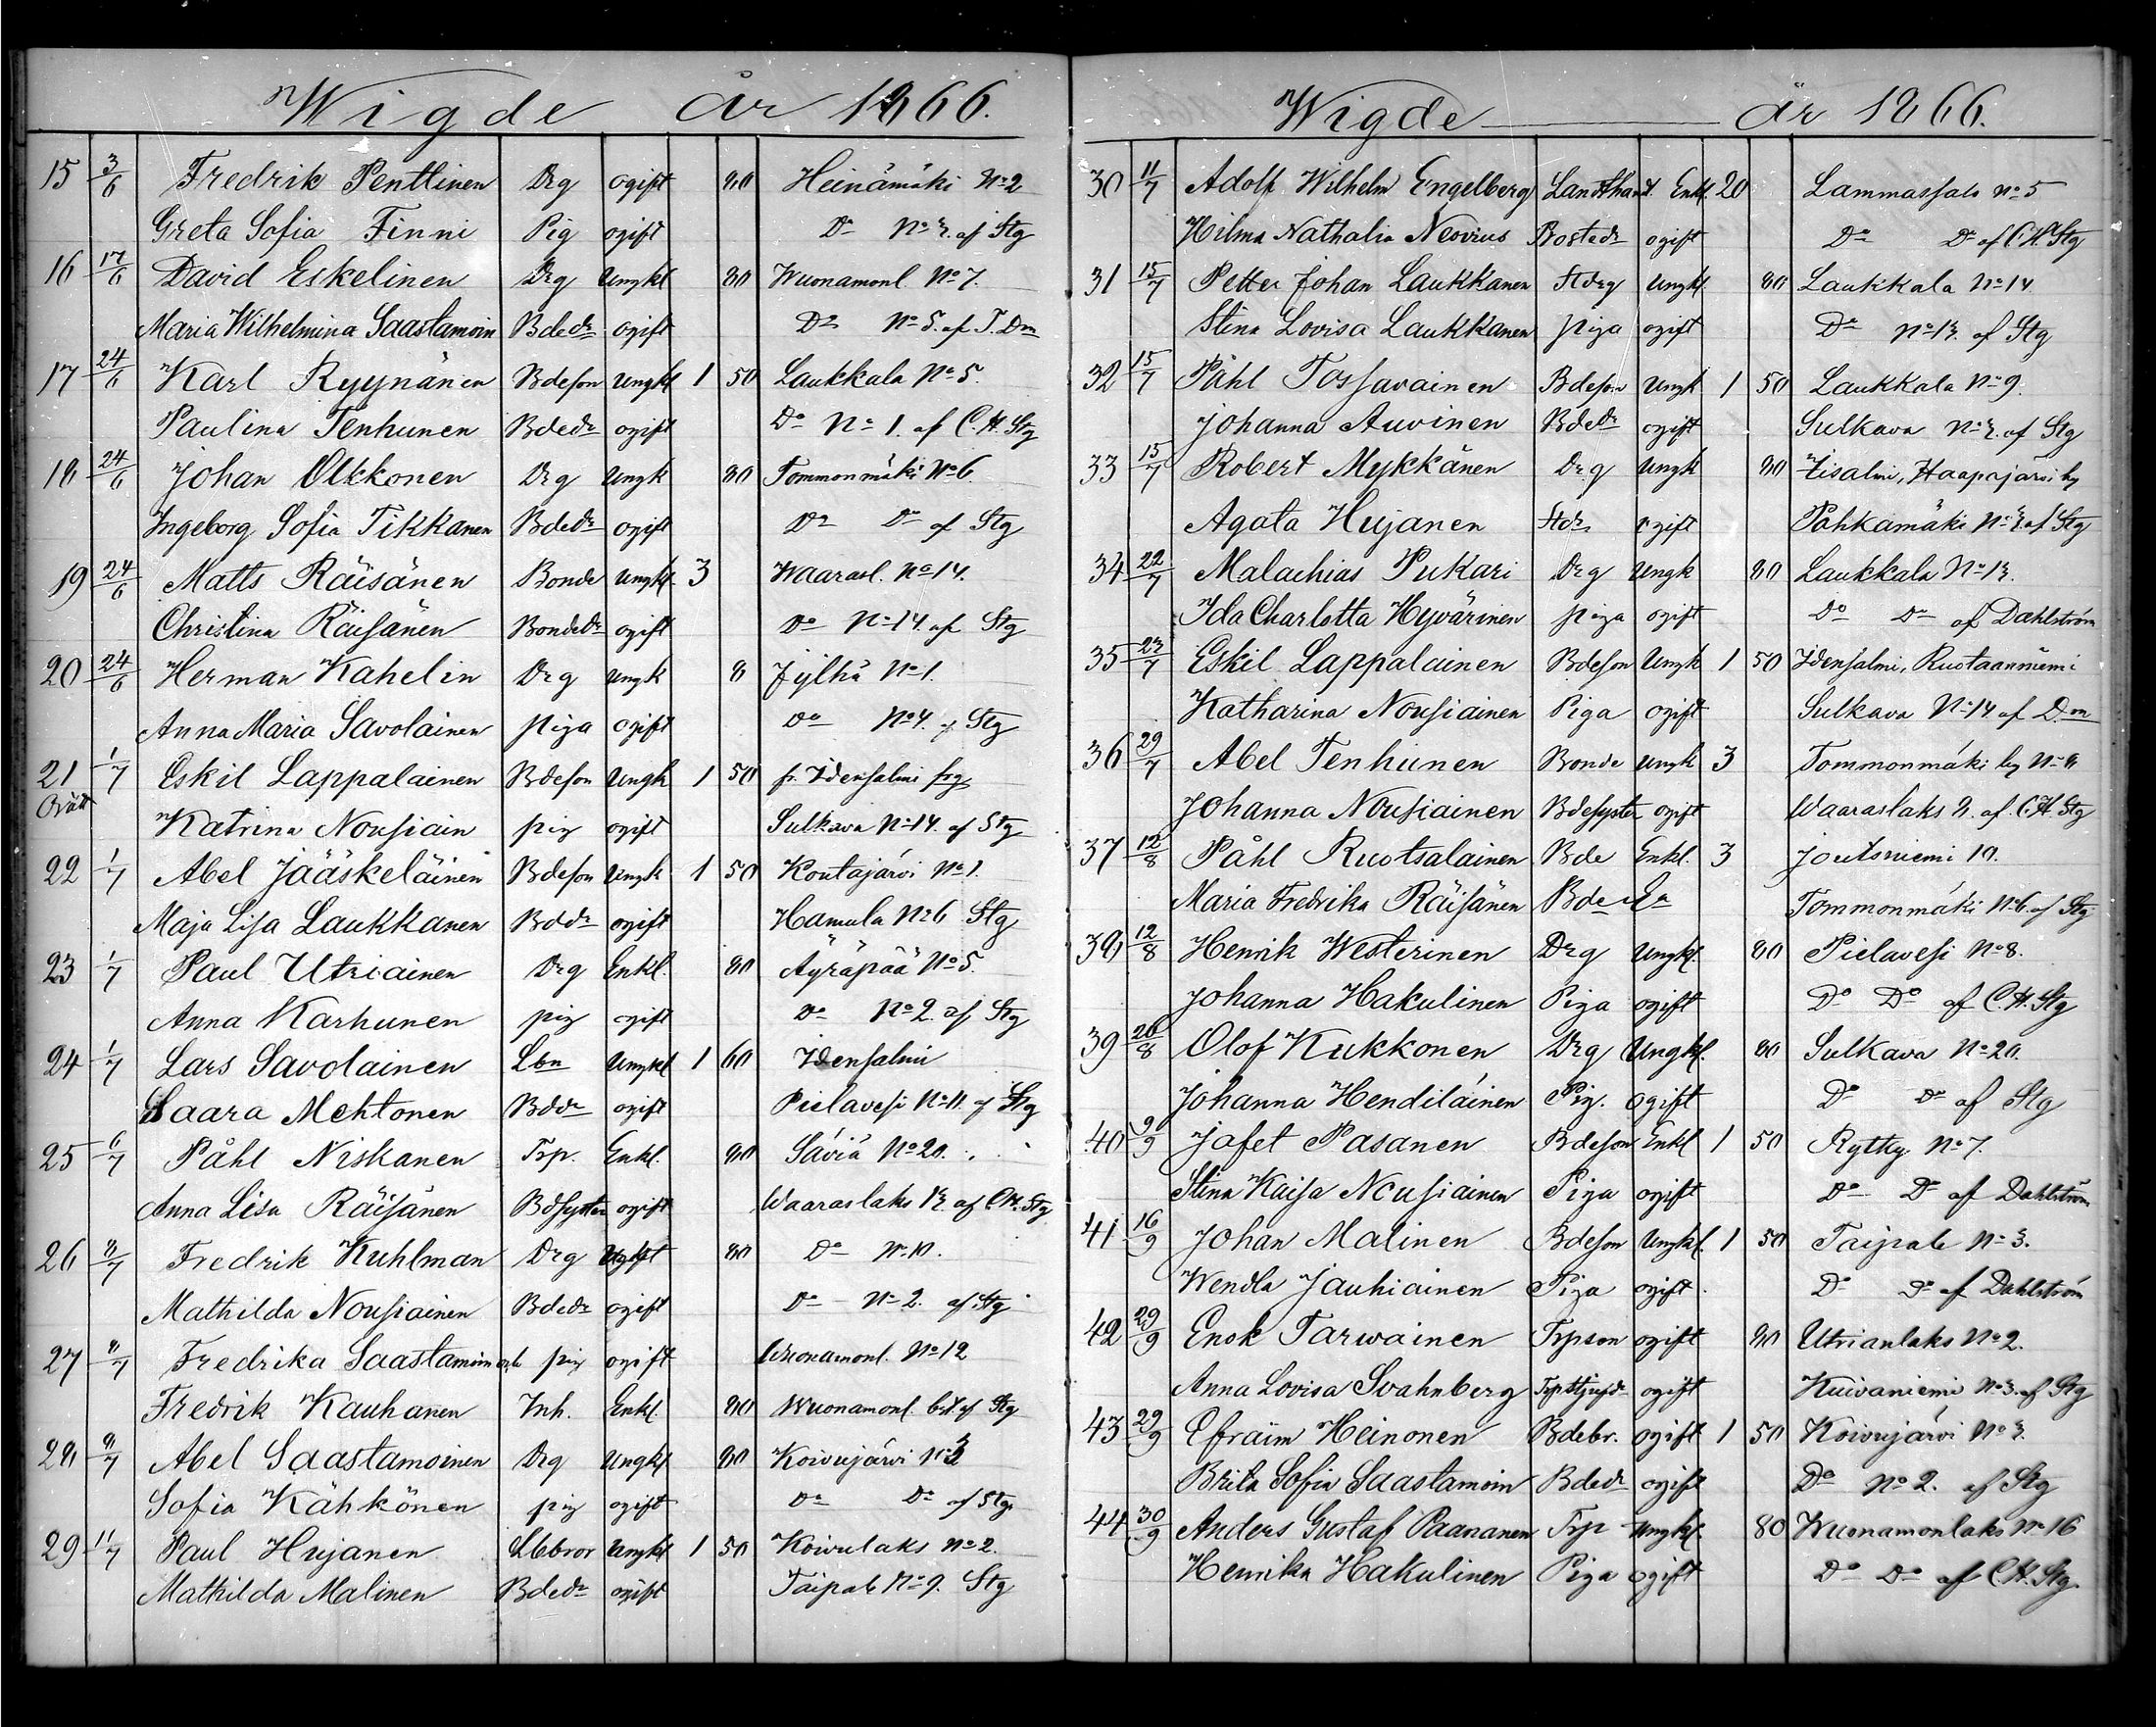 Wigde år 1866.
15 3/6 Fredrik Penttinen Drg ogift 80 Heinämäki No 2
Greta Sofia Finni Pig ogift Do No 3. af Stg
16 17/6 David Eskelinen Drg Ungkl 80 Wuonamonl No 7.
Maria Wilhelmina Saastamoin Bdedr ogift Do No 5. af T. Dm
17 24/6 Karl Ryynänen Bdeson Ungkl 1 50 Laukkala No 5.
Paulina Tenhunen Bdedr ogift Do No 1. af C. H. Stg
18 24/6 Johan Olkkonen Drg Ungk 80 Tommonmäki No 6.
Ingeborg Sofia Tikkanen Bdedr ogift Do Do af Stg
19 24/6 Matts Räisänen Bonde Ungkl 3 Waarasl. No 14.
Christina Räisänen Bondedr ogift Do No 14 af Stg
20 24/6 Herman Kahelin Drg Ungk 8 Jylhä No 1.
Anna Maria Savolainen piga ogift Do No 4. af Stg
21 1/7 Eskil Lappalainen Bdeson Ungk 1 50 fr. Idensalmi frg
Katrina Nousiain pig ogift Sulkava No 14. af Stg
22 1/7 Abel Jääskeläinen Bdeson Ungk 1 50 Koutajärvi No 1.
Maja Lisa Laukkanen Bddr ogift Hamula No 6 Stg
23 1/7 Paul Utriainen Drg Enkl. 80 Äyräpää No 5.
Anna Karhunen pig ogift Do No 2. af Stg
24 1/7 Lars Savolainen Lbn Ungkl 1 60 Idensalmi
Saara Mehtonen Bddr ogift Pielavesi No 11. af Stg
25 6/7 Påhl Niskanen Trp. Enkl. 80 Säviä No 20.
Anna Lisa Räisänen Bdsyster ogift Waaraslaks 13. af C. H. Stg
26 8/7 Fredrik Kuhlman Drg 80 Do No 10.
Mathilda Nousiainen Bdedr ogift Do No 2. af Stg
27 8/7 Fredrika Saastamoin och pig ogift Wuonamonl. No 12
Fredrik Kauhanen Inh. Enkl. 80 Wuonamonl. af Stg
28 8/7 Abel Saastamoinen Drg Ungkl 80 Koivujärvi No 3
Sofia Kähkönen pig ogift Do Do af Stg
29 11/7 Paul Hujanen Ungkl 1 50 Koivulaks No 2.
Mathilda Malinen Bdedr ogift Taipale No 9. Stg
Wigde år 1866.
30 11/7 Adolf Wilhelm Engelberg Landthandl. Enkl. 20 Lammassalo No 5
Hilma Nathalia Neovius ogift Do Do af C H. Stg
31 15/7 Petter Johan Laukkanen Stdrg Ungkl. 80 Laukkala No 14
Stina Lovisa Laukkanen piga ogift Do No 13. af Stg
32 15/7 Påhl Tossavainen Bdeson Ungk 1 50 Laukkala No 9.
Johanna Auvinen Bdedr ogift Sulkava No 3. af Stg
33 15/7 Robert Mykkänen Drg Ungk 80 Iisalmi, Haapajärvi by
Agata Hujanen Stdr ogift Pohkamäki No 3. af Stg
34 22/7 Malachias Pukari Drg Ungk 80 Laukkala No 13.
Ida Charlotta Hyvärinen piga ogift Do Do af Dahlström
35 23/7 Eskil Lappalainen Bdeson Ungk 1 50 Idensalmi, Ruotaanniemi
Katharina Nousiainen Piga ogift Sulkava No 14 af D.m
36 29/7 Abel Tenhunen Bonde Ungk 3 Tommonmäki by No 8
Johanna Nousiainen Bdesyster ogift Waaraslaks af C. H. Stg
37 12/8 Påhl Ruotsalainen Bde Enkl. 3 Joutsniemi 10.
Maria Fredrika Räisänen Bde Ea Tommonmäki No 6. af Stg
38 12/8 Henrik Westerinen Drg Ungkl. 80 Pielavesi No 8.
Johanna Hakulinen Piga ogift Do Do af C. H. Stg
39 26/8 Olof Kukkonen Drg Ungkl. 80 Sulkava No 20.
Johanna Hendiläinen Pig. ogift Do Do af Stg
40 9/9 Jafet Pasanen Bdeson Enkl 1 50 Rytky No 7.
Stina Kaisa Nousiainen Piga ogift Do Do af Dahlström
41 16/9 Johan Malinen Bdeson Ungkl. 1 50 Taipale No 3.
Wendla Jauhiainen Piga ogift Do Do af Dahlström
42 29/9 Enok Tarwainen Trpson ogift 80 Utrianlaks No 2.
Anna Lovisa Svahnberg Trpstjufdr ogift Kuivaniemi No 3. af Stg
43 29/9 Efraim Heinonen Bdebr. ogift 1 50 Koivujärvi No 3.
Brita Sofia Saastamoin Bdedr ogift Do No 2. af Stg
44 30/9 Anders Gustaf Paananen Trp Ungkl. 80 Wuonamonlaks No 16
Henrika Hakulinen Piga ogift Do Do af C. H. Stg.